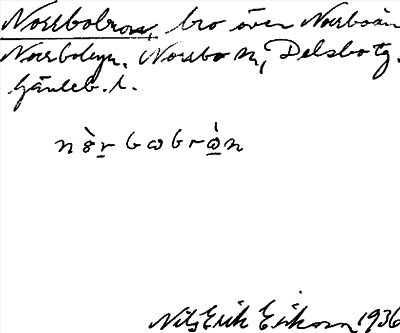 Norrbobron, bro över Norrboån
Norrbobyn. Norrbo sn, Delsbo tg.
Gävleb. l.
nòr bωbrὼn
Nils Erik Erikson 1936